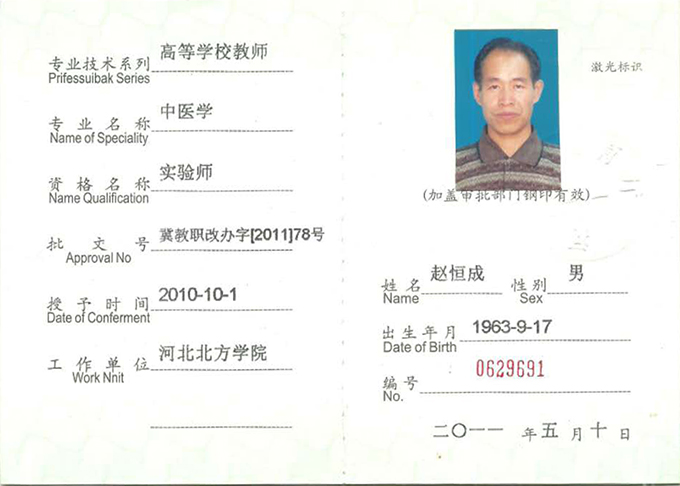 专业技术系列 高等学校教师
Prifessuibak Series
专业名称 中医学
Name of Speciality
资格名称 实验师
Name Qualification
批文号 冀教职改办字[2011]78号
Approval No
授予时间 2010-10-1
Date of Conferment
工作单位 河北北方学院
Work Nnit
激光标识
(加盖审批部门钢印有效)
姓名 赵恒成 性别 男
Name Sex
出生年月 1963-9-17
Date of Birth
编号 0629691
No.
二〇一一 年 五 月 十 日